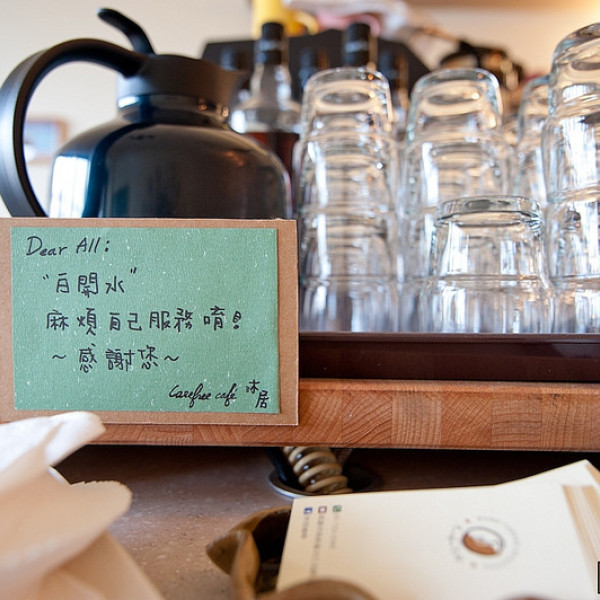 Dear All:
"白開水"
麻煩自己服務唷!
~感謝您~
Carefree café 沐居